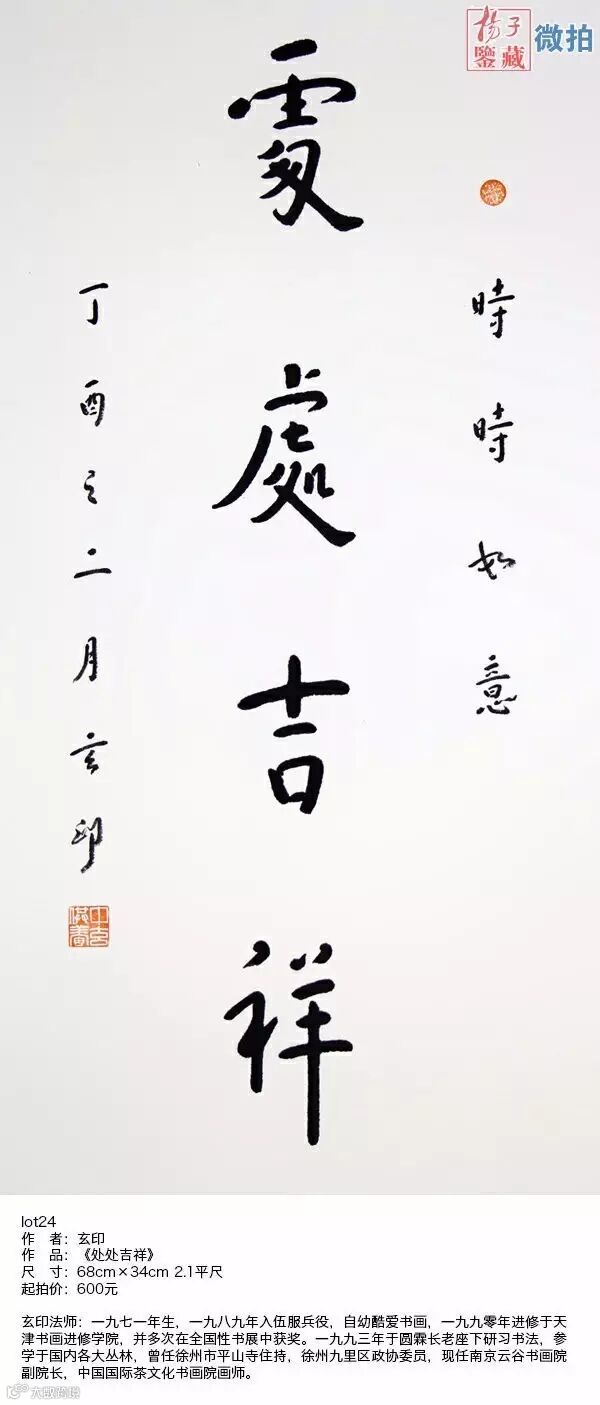 楊子
鑒藏
微拍
時時如意
處處吉祥
丁酉之二月玄印
lot24
作 者：玄印
作 品：《处处吉祥》
尺 寸：68cm×34cm 2.1平尺
起拍价：600元
玄印法师：一九七一年生，一九八九年入伍服兵役，自幼酷爱书画，一九九零年进修于天
津书画进修学院，并多次在全国性书展中获奖。一九九三年于圆霖长老座下研习书法，参
学于国内各大丛林，曾任徐州市平山寺住持，徐州九里区政协委员，现任南京云谷书画院
副院长，中国国际茶文化书画院画师。